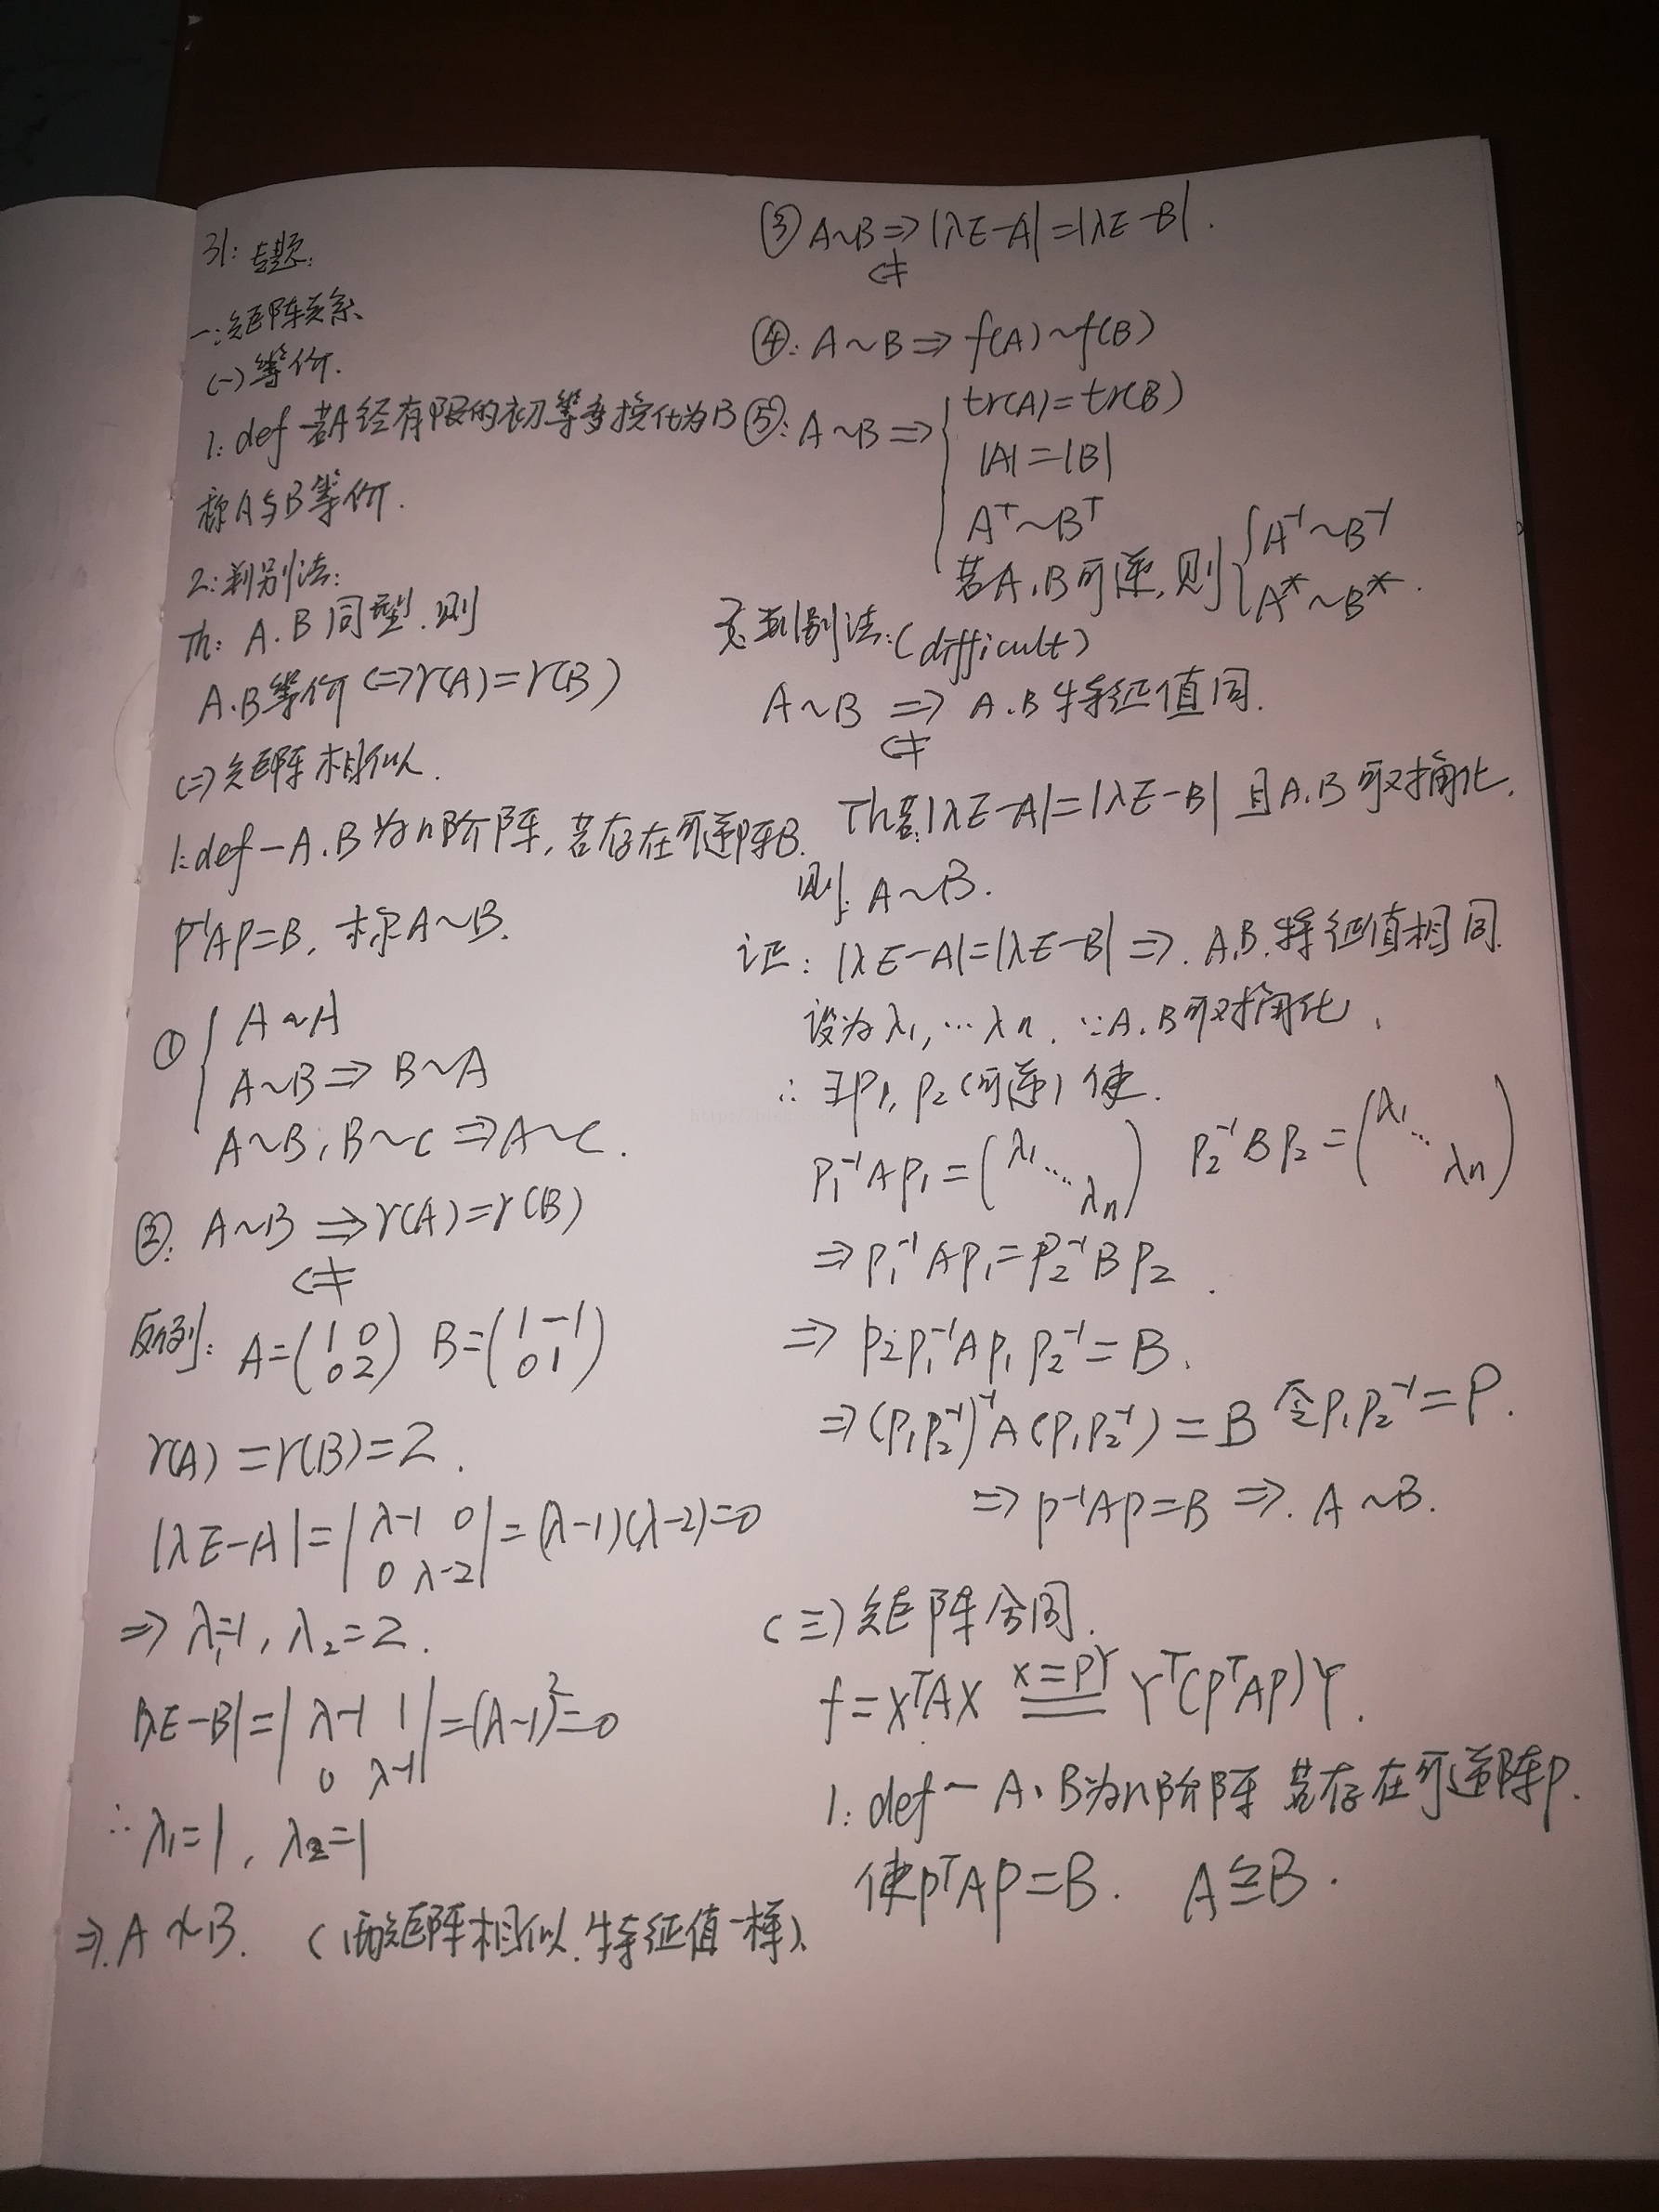 31: 专题:
一:矩阵关系
(一)等价.
1: def-若A经有限的初等变换化为B
称A与B等价.
2:判别法:
Th: A.B同型.则
A.B等价⇔r(A)=r(B)
(二)矩阵相似.
1:def-A.B为n阶阵,若存在可逆阵B.
P⁻¹AP=B, 称A~B.
① { A~A
A~B⇒B~A
A~B, B~C⇒A~C.
②: A~B ⇒r(A)=r(B)
⇍
反例: A=(1 0
0 2) B=(1 -1
0 1)
r(A)=r(B)=2.
|λE-A|=|λ-1 0
0 λ-2|=(λ-1)(λ-2)=0
⇒ λ₁=1, λ₂=2.
|λE-B|=|λ-1 1
0 λ-1|=(λ-1)²=0
∴ λ₁=1, λ₂=1
⇒. A≁B. (两矩阵相似.特征值一样).
③ A~B⇒|λE-A|=|λE-B|.
⇍
④: A~B⇒f(A)~f(B)
⑤: A~B⇒{ tr(A)=tr(B)
|A|=|B|
Aᵀ~Bᵀ
若A.B可逆,则{ A⁻¹~B⁻¹
A*~B*.
判别法:(difficult)
A~B ⇒ A.B特征值同.
⇍
Th若:|λE-A|=|λE-B| 且A.B可对角化.
则: A~B.
证: |λE-A|=|λE-B|⇒. A.B.特征值相同.
设为λ₁,…λn. ∵A.B可对角化.
∴ ∃P₁, P₂(可逆)使.
P₁⁻¹AP₁=(λ₁ ⋱ λn) P₂⁻¹BP₂=(λ₁ ⋱ λn)
⇒P₁⁻¹AP₁=P₂⁻¹BP₂.
⇒ P₂P₁⁻¹AP₁P₂⁻¹=B.
⇒(P₁P₂⁻¹)⁻¹A(P₁P₂⁻¹)=B 令P₁P₂⁻¹=P.
⇒P⁻¹AP=B⇒. A~B.
(三)矩阵合同.
f=XᵀAX x=PY Yᵀ(PᵀAP)Y.
1: def-A.B为n阶阵 若存在可逆阵P.
使PᵀAP=B. A≅B.